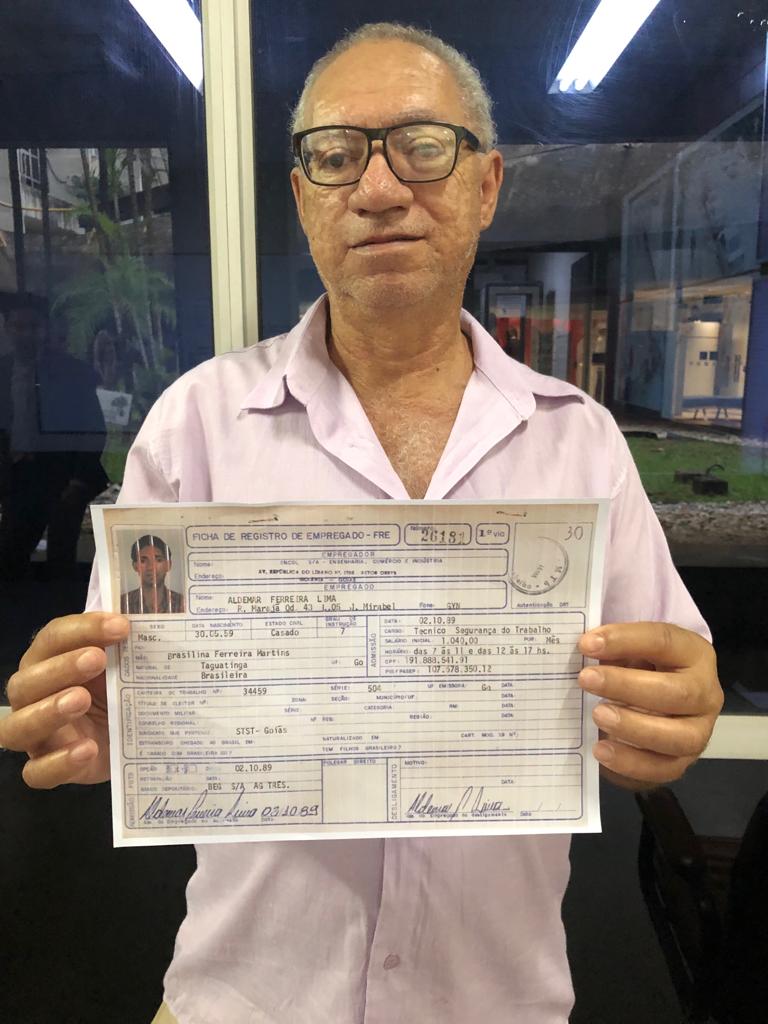 FICHA DE REGISTRO DE EMPREGADO - FRE
Número 26181
1.ª via
30
EMPREGADOR
Nome: ENCOL S/A - ENGENHARIA, COMÉRCIO E INDÚSTRIA
Endereço: AV. REPÚBLICA DO LÍBANO Nº
GOIÂNIA - GOIÁS
EMPREGADO
Nome: ALDEMAR FERREIRA LIMA
Endereço: R. Marajá Qd. 43 L.05 J. Mirabel Fone: GYN
Autenticação DRT
M.T.b
SEXO DATA NASCIMENTO ESTADO CIVIL GRAU DE INSTRUÇÃO
Masc. 30.05.59 Casado 7
PAI:
MÃE: Brasilina Ferreira Martins
NATURAL DE Taguatinga UF: Go
NACIONALIDADE Brasileira
ADMISSÃO
DATA: 02.10.89
CARGO: Tecnico Segurança do Trabalho
SALÁRIO INICIAL 1.040,00 POR: Mês
HORÁRIO: das 7 às 11 e das 12 às 17 hs.
CPF: 191.888.541.91
PIS/PASEP: 107.578.350.12
IDENTIFICAÇÃO
CARTEIRA DE TRABALHO Nº: 34459 SÉRIE: 504 UF EMISSORA: Go DATA:
TÍTULO DE ELEITOR Nº: ZONA: SEÇÃO: MUNICÍPIO/UF: DATA:
DOCUMENTO MILITAR: SÉRIE: CATEGORIA: RM: DATA:
CONSELHO REGIONAL: Nº REG: REGIÃO: DATA:
SINDICATO QUE PERTENCE: STST- Goiás
ESTRANGEIRO CHEGADO AO BRASIL EM: NATURALIZADO EM: CART. MOD. 19 Nº:
É CASADO COM BRASILEIRA (O)? TEM FILHOS BRASILEIRO?
OPÇÃO 02.10.89
RETRATAÇÃO DATA:
BANCO DEPOSITÁRIO: BEG S/A AG TRÊS.
Aldemar Ferreira Lima 02/10/89
POLEGAR DIREITO
DESLIGAMENTO
MOTIVO:
DATA:
Aldemar F. Lima